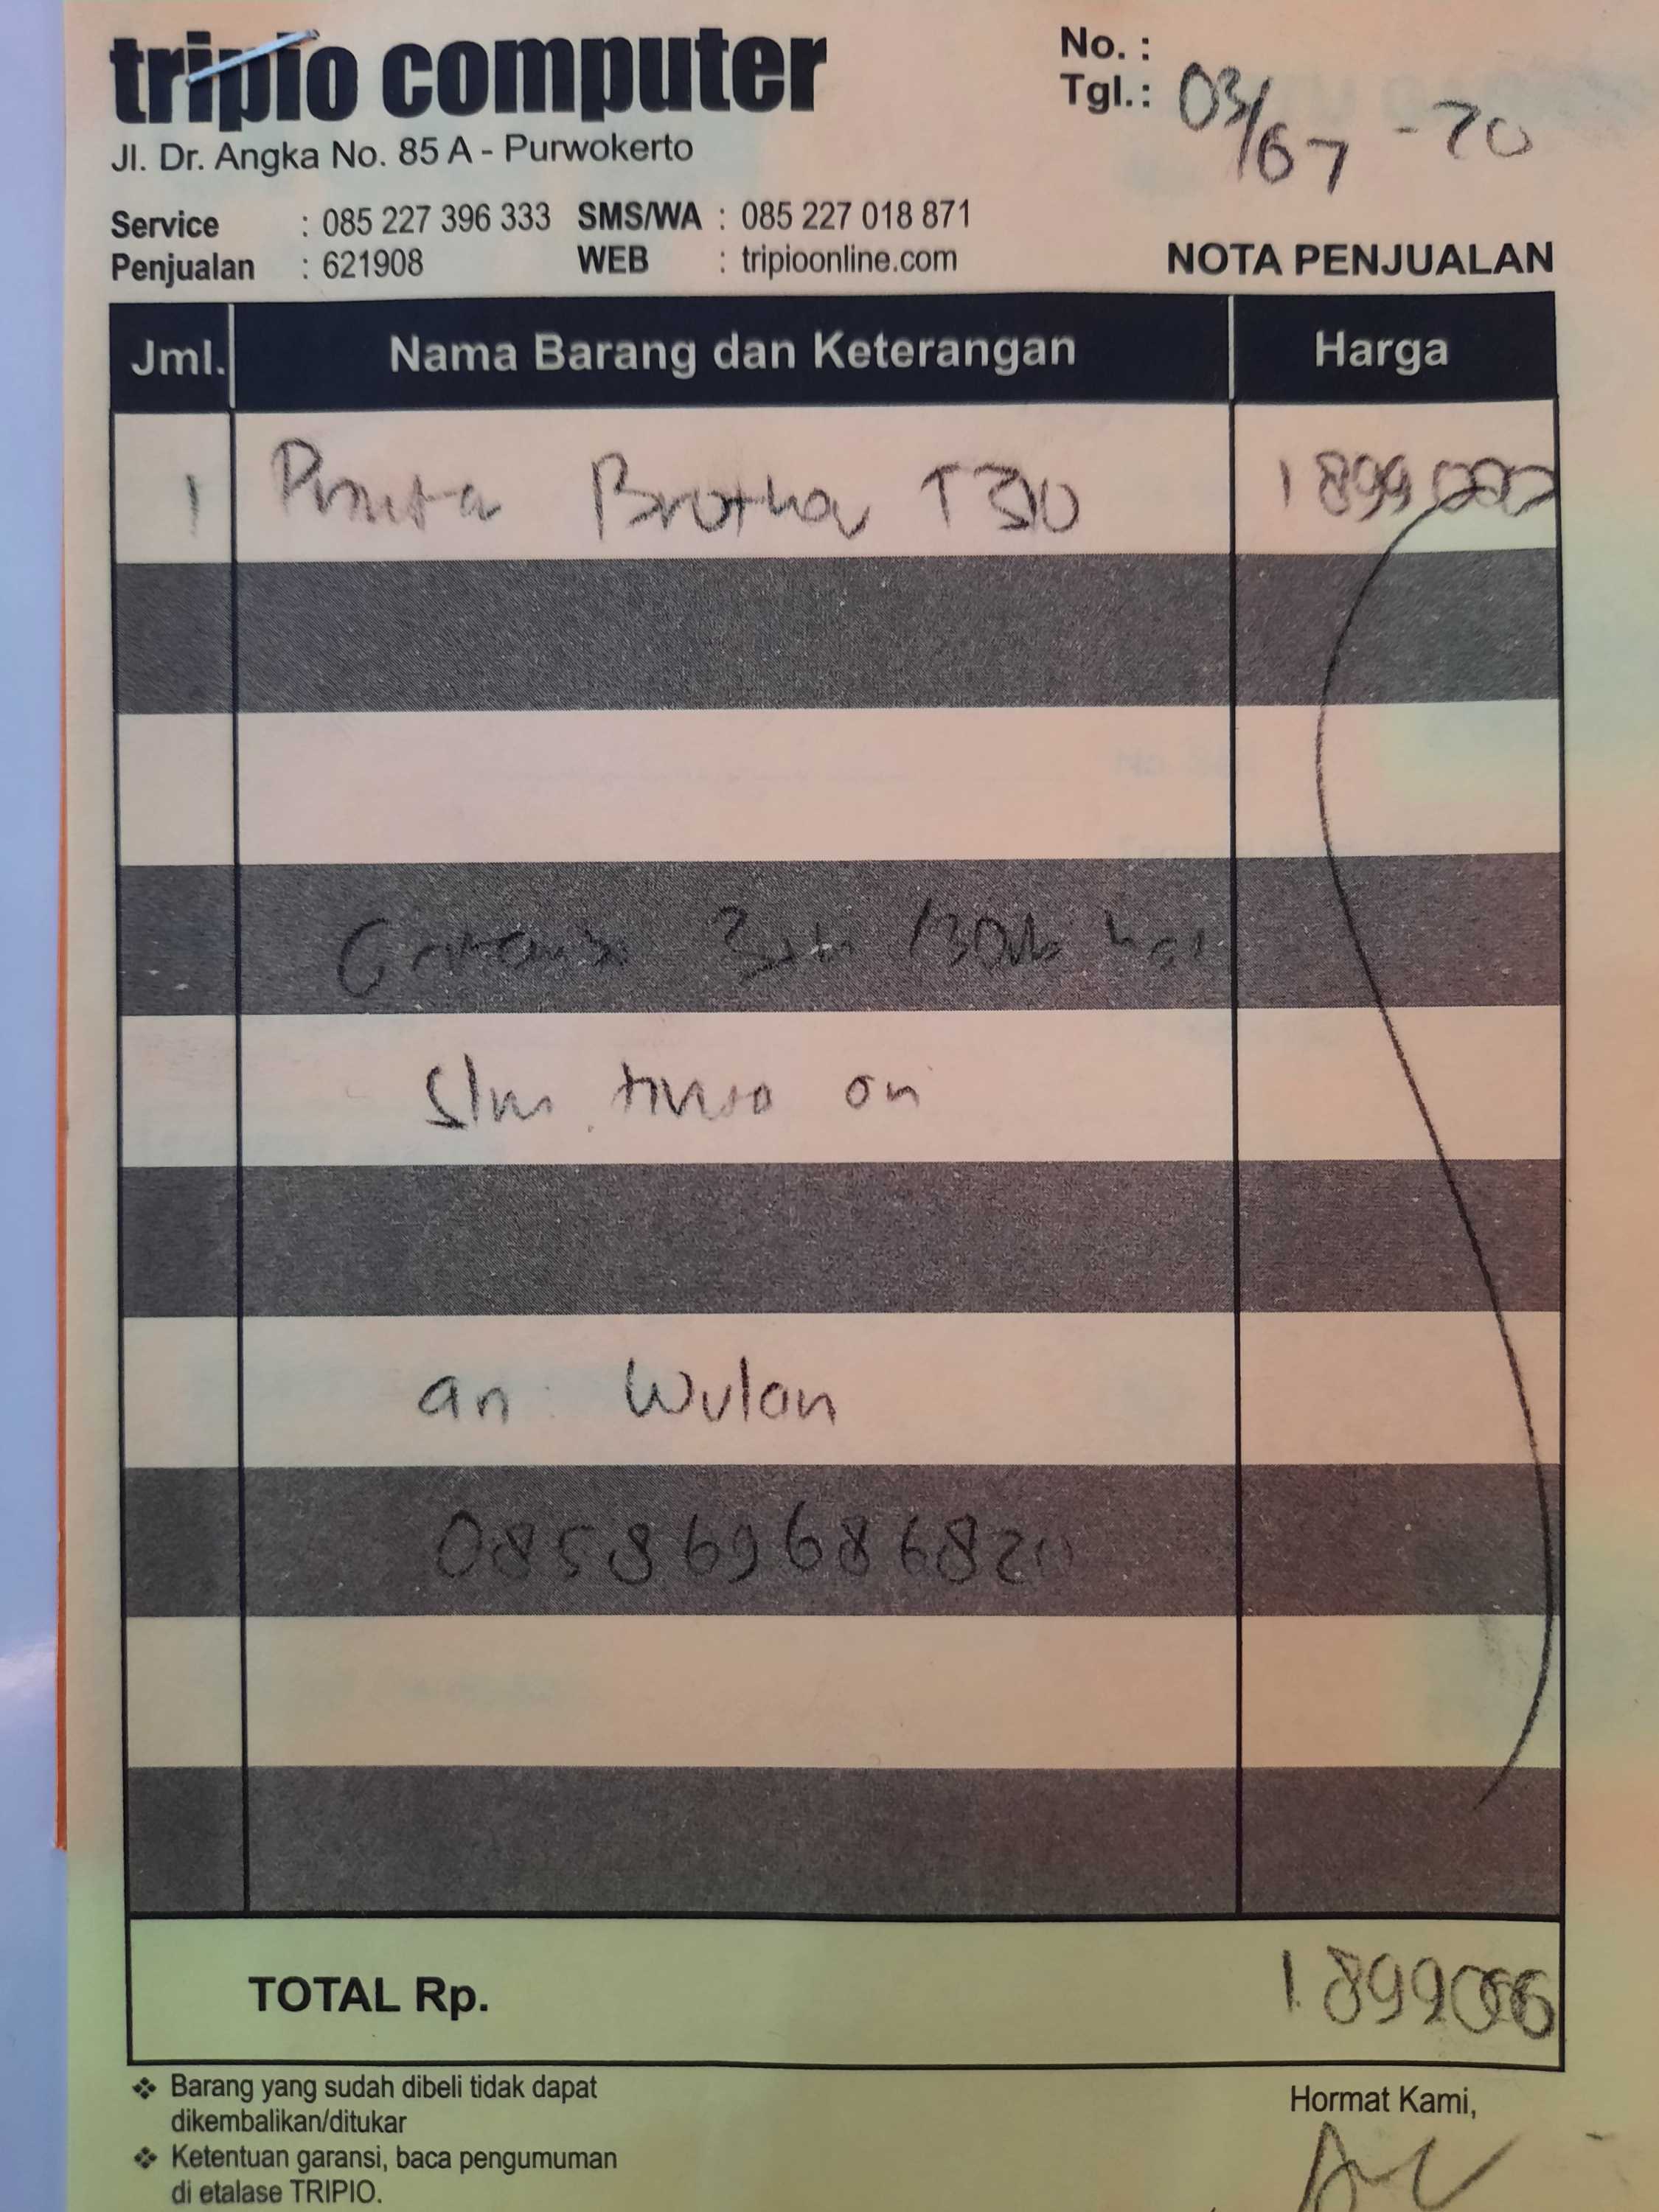 tripio computer
Jl. Dr. Angka No. 85 A - Purwokerto
No. :
Tgl.: 03/07 - 20
Service : 085 227 396 333 SMS/WA : 085 227 018 871
Penjualan : 621908 WEB : tripioonline.com
NOTA PENJUALAN
Jml. Nama Barang dan Keterangan Harga
1 Printer Brother T310 1899000
Garansi
an Wulan
085869686820
TOTAL Rp. 1.899000
❖ Barang yang sudah dibeli tidak dapat
dikembalikan/ditukar
❖ Ketentuan garansi, baca pengumuman
di etalase TRIPIO.
Hormat Kami,